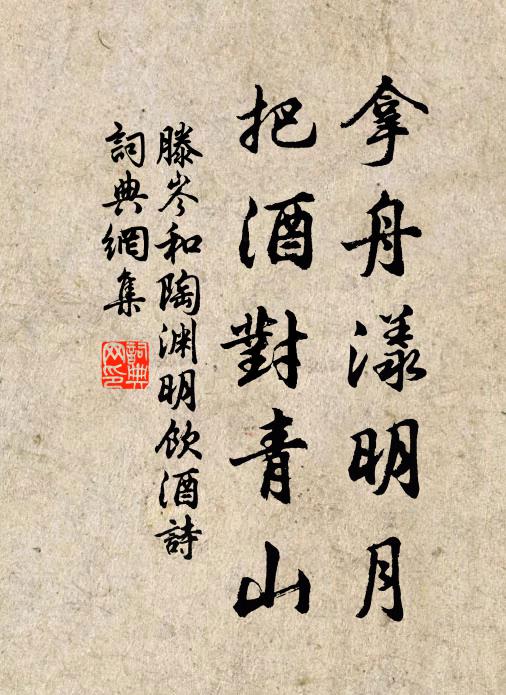 拿舟漾明月
把酒對青山
滕岑和陶渊明飲酒詩
詞典網集
詞典
网印